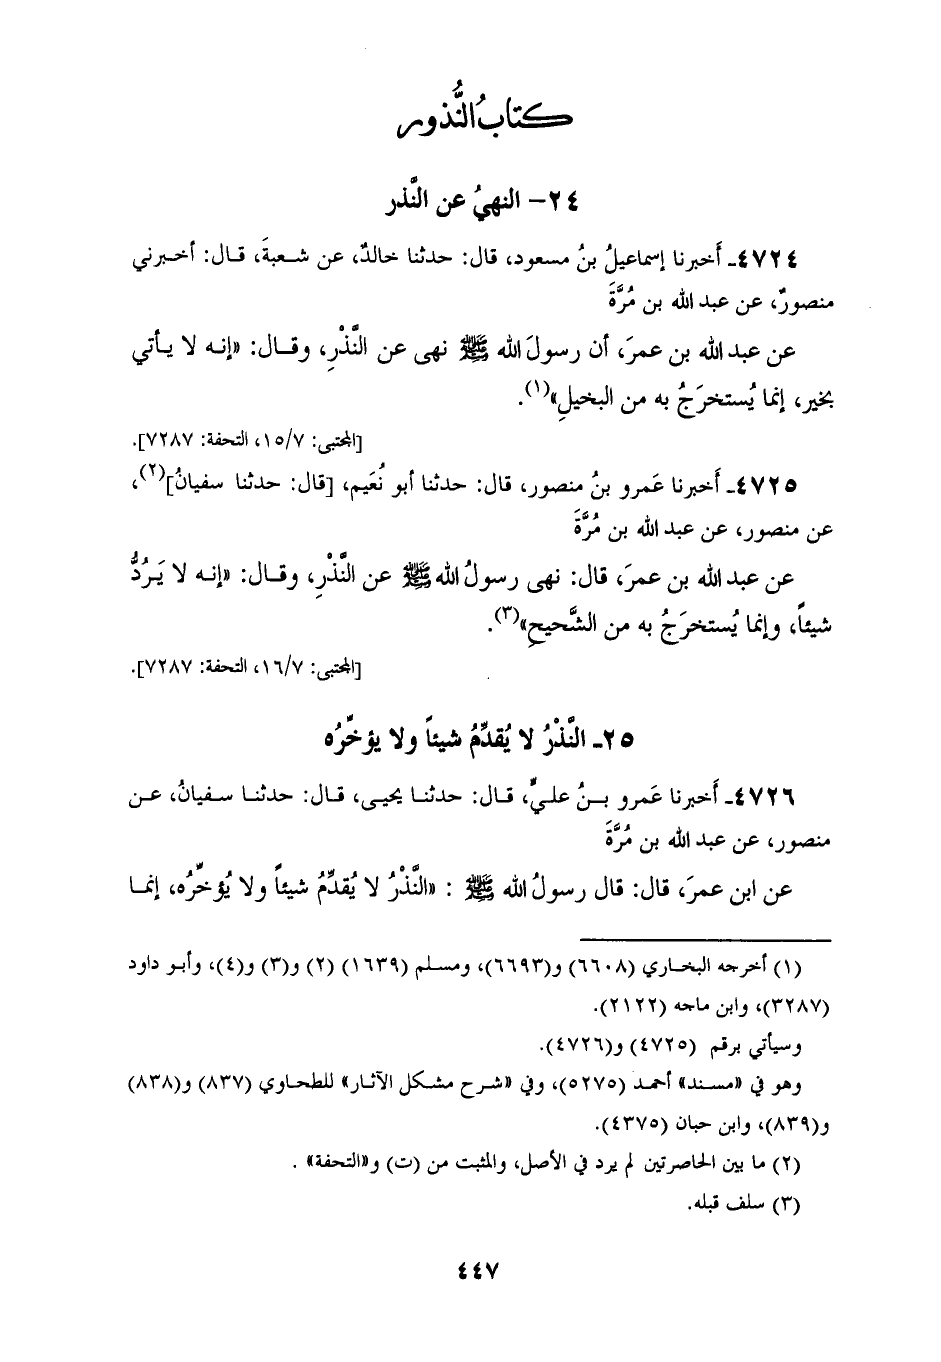 كتابُ النُّذور
٢٤ - النهيُ عن النَّذر
٤٧٢٤ـ أَخبرنا إسماعيلُ بنُ مسعود، قال: حدثنا خالدٌ، عن شعبةَ، قال: أخبرني
منصورٌ، عن عبد الله بن مُرَّةَ
عن عبد الله بن عمرَ، أن رسولَ الله ﷺ نهى عن النَّذْرِ، وقال: «إنه لا يأتي
بخير، إنما يُستخرَجُ به من البخيلِ»(١).
[المجتبى: ١٥/٧، التحفة: ٧٢٨٧].
٤٧٢٥ـ أَخبرنا عَمرو بنُ منصور، قال: حدثنا أبو نُعَيم، [قال: حدثنا سفيانُ](٢)،
عن منصور، عن عبد الله بن مُرَّةَ
عن عبد الله بن عمرَ، قال: نهى رسولُ الله ﷺ عن النَّذْرِ، وقال: «إنه لا يَرُدُّ
شيئاً، وإنما يُستخرَجُ به من الشَّحيحِ»(٣).
[المجتبى: ١٦/٧، التحفة: ٧٢٨٧].
٢٥ـ النَّذْرُ لا يُقدِّمُ شيئاً ولا يؤخِّرُه
٤٧٢٦ـ أَخبرنا عَمرو بنُ عليٍّ، قال: حدثنا يحيى، قال: حدثنا سفيانُ، عن
منصور، عن عبد الله بن مُرَّةَ
عن ابن عمرَ، قال: قال رسولُ الله ﷺ : «النَّذْرُ لا يُقدِّمُ شيئاً ولا يُؤخِّرُه، إنما
(١) أخرجه البخاري (٦٦٠٨) و(٦٦٩٣)، ومسلم (١٦٣٩) (٢) و(٣) و(٤)، وأبو داود
(٣٢٨٧)، وابن ماجه (٢١٢٢).
وسيأتي برقم (٤٧٢٥) و(٤٧٢٦).
وهو في «مسند» أحمد (٥٢٧٥)، وفي «شرح مشكل الآثار» للطحاوي (٨٣٧) و(٨٣٨)
و(٨٣٩)، وابن حبان (٤٣٧٥).
(٢) ما بين الحاصرتين لم يرد في الأصل، والمثبت من (ت) و«التحفة» .
(٣) سلف قبله.
٤٤٧